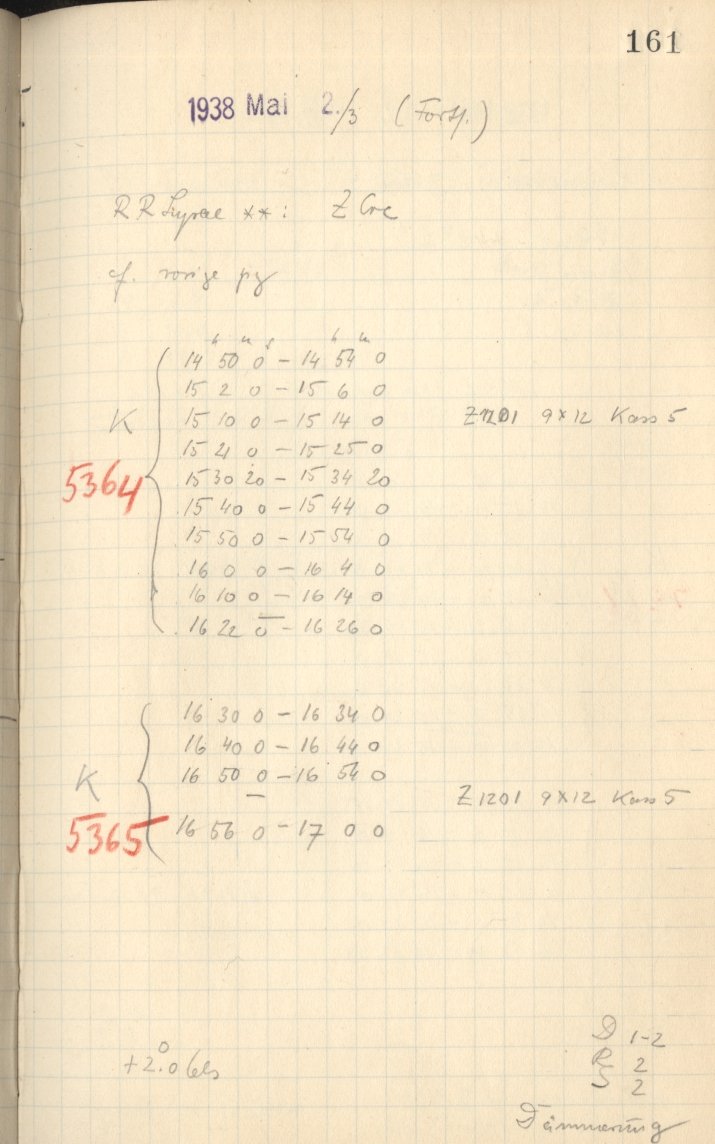 161
1938 Mai 2./3 (Forts.)
RR Lyrae **: Z Cvc
cf. vorige pg
h m s h m
14 50 0 – 14 54 0
15 2 0 – 15 6 0
K 15 10 0 – 15 14 0 Z1201 9×12 Kass 5
15 21 0 – 15 25 0
5364 15 30 20 – 15 34 20
15 40 0 – 15 44 0
15 50 0 – 15 54 0
16 0 0 – 16 4 0
16 10 0 – 16 14 0
16 22 0 – 16 26 0
16 30 0 – 16 34 0
16 40 0 – 16 44 0
K 16 50 0 – 16 54 0
Z1201 9×12 Kass 5
5365 16 56 0 – 17 0 0
D 1-2
R 2
+2.°0 Cels
S 2
Dämmerung